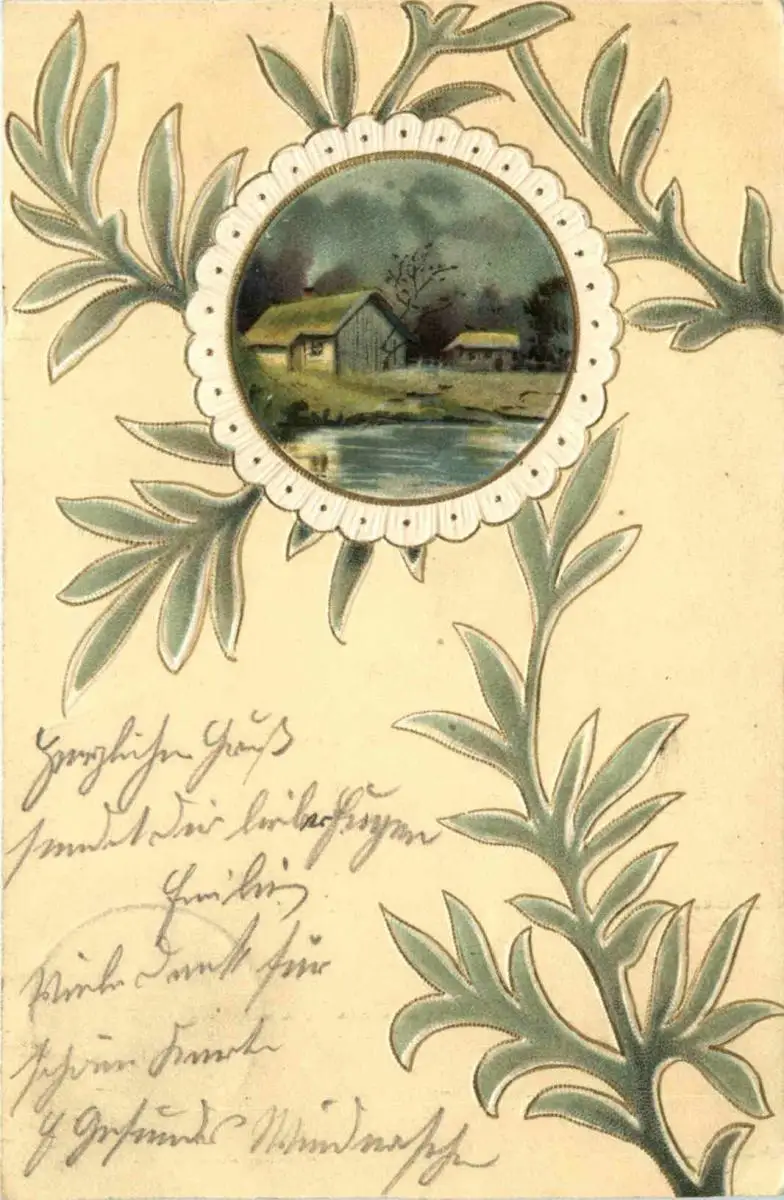 Herzlichen Gruß
sendet dir lieber Eugen
Emilie
Viele Dank für
schöne Karte
Gesundes